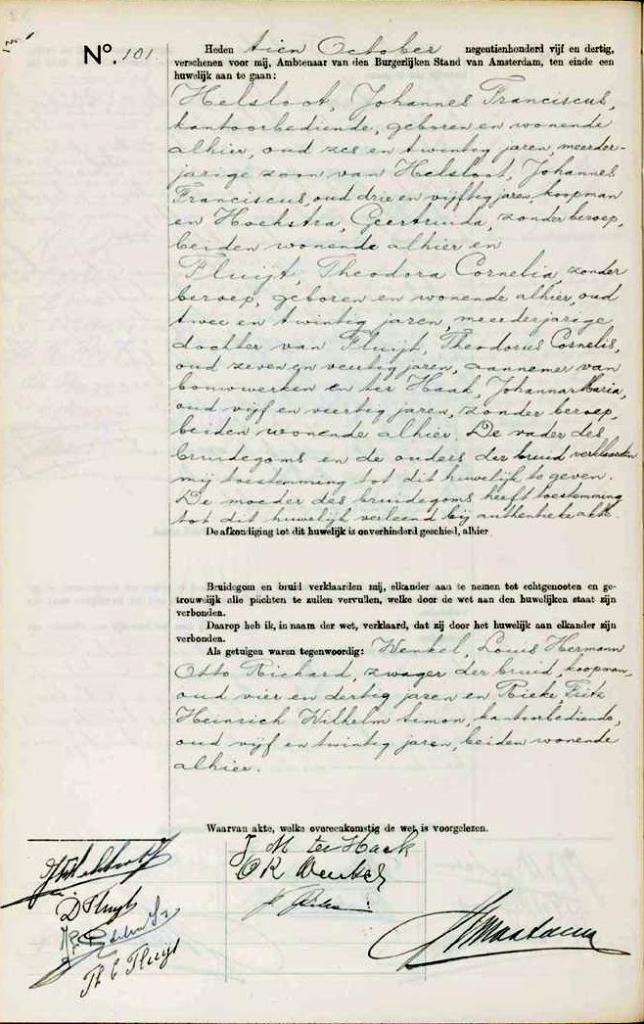 Nº. 101
Heden tien October negentienhonderd vijf en dertig,
verschenen voor mij, Ambtenaar van den Burgerlijken Stand van Amsterdam, ten einde een
huwelijk aan te gaan:
Helsloot, Johannes Franciscus,
kantoorbediende, geboren en wonende
alhier, oud zes en twintig jaren, meerder-
jarige zoon van Helsloot, Johannes
Franciscus, oud drie en vijftig jaren, koopman
en Hoekstra, Geertruida, zonder beroep,
beiden wonende alhier en
Fluijt, Theodora Cornelia, zonder
beroep, geboren en wonende alhier, oud
twee en twintig jaren, meerderjarige
dochter van Fluijt, Theodorus Cornelis,
oud zeven en veertig jaren, aannemer van
bouwwerken en ter Haak, Johanna Maria,
oud vijf en veertig jaren, zonder beroep,
beiden wonende alhier. De vader des
bruidegoms en de ouders der bruid verklaarden
mij toestemming tot dit huwelijk te geven.
De moeder des bruidegoms heeft toestemming
tot dit huwelijk verleend bij authentieke akte.
De afkondiging tot dit huwelijk is onverhinderd geschied, alhier
Bruidegom en bruid verklaarden mij, elkander aan te nemen tot echtgenooten en ge-
trouwelijk alle plichten te zullen vervullen, welke door de wet aan den huwelijken staat zijn
verbonden.
Daarop heb ik, in naam der wet, verklaard, dat zij door het huwelijk aan elkander zijn
verbonden.
Als getuigen waren tegenwoordig: Wenkel, Louis Hermann
Otto Richard, zwager der bruid, koopman,
oud vier en dertig jaren en Rieke, Fritz
Heinrich Wilhelm Simon, kantoorbediende,
oud vijf en twintig jaren, beiden wonende
alhier.
Waarvan akte, welke overeenkomstig de wet, is voorgelezen.
J M ter Haak
D Fluyt
Th C Fluyt